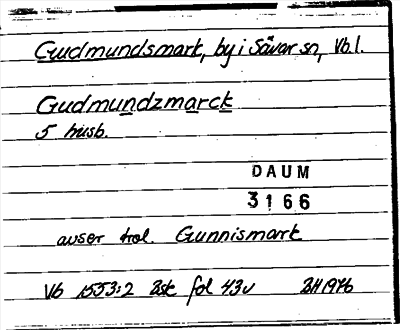 Gudmundsmark, by i Sävar sn, Vb l.
Gudmundzmarck
5 husb.
DAUM
3166
avser trol. Gunnismark
Vb 1553:2 Bst fol 43v BH 1976